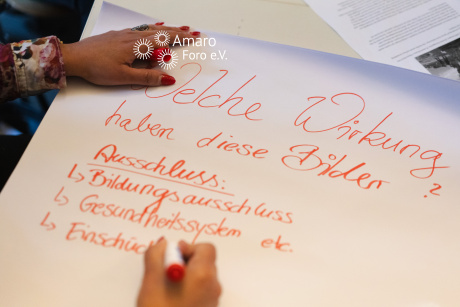 Amaro
Foro e.V.
Welche Wirkung
haben diese Bilder?
Ausschluss:
↳ Bildungsausschluss
↳ Gesundheitssystem etc.
↳ Einschüc